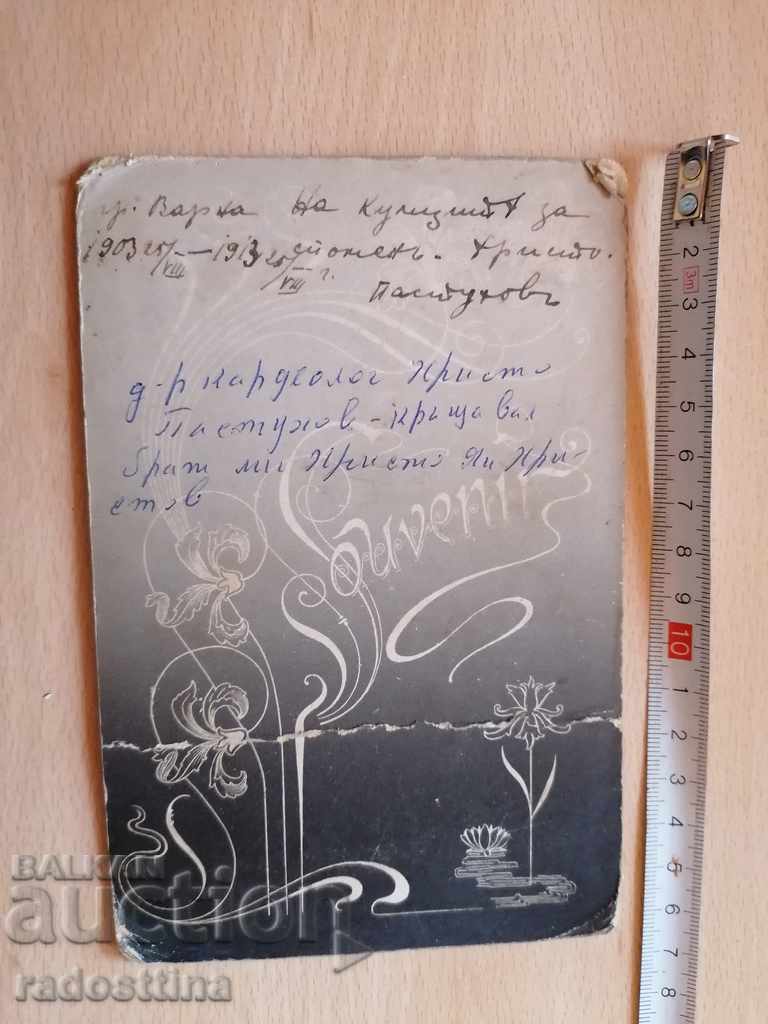 гр. Варна На Кумецитѣ за
1903 25/VIII — 1913 25/VIII г. спомень. Христо.
Пастуховъ
д-р кардеолог Христо
Пастухов - кръщавал
брат ми Христо Ян Хри-
стов
Souvenir
2
3m
3
4
5
6
7
8
9
10
1
2
3
4
5
6
7
8
BALKAN
auction
radosttina